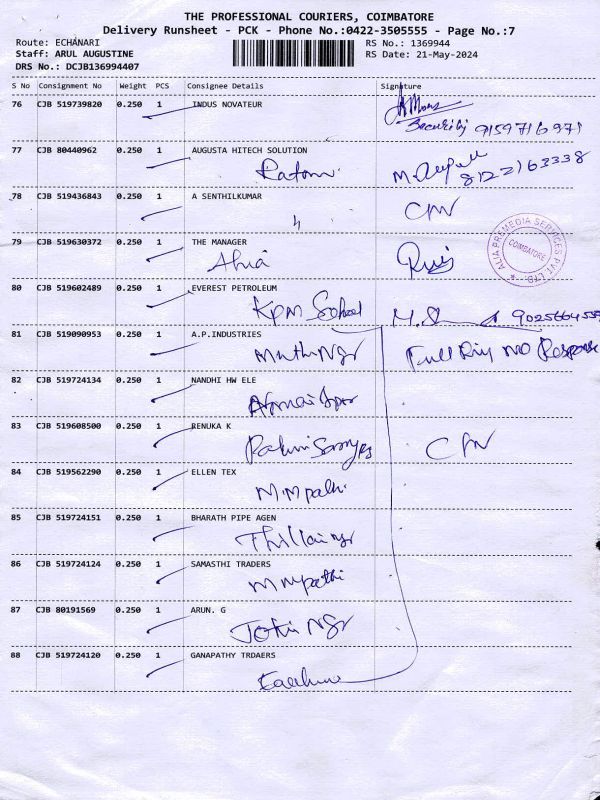 THE PROFESSIONAL COURIERS, COIMBATORE
Delivery Runsheet - PCK - Phone No.:0422-3505555 - Page No.:7
Route: ECHANARI
RS No.: 1369944
Staff: ARUL AUGUSTINE
RS Date: 21-May-2024
DRS No.: DCJB136994407
S No Consignment No Weight PCS Consignee Details Signature
76 CJB 519739820 0.250 1 INDUS NOVATEUR
Security 9159716971
77 CJB 80440962 0.250 1 AUGUSTA HITECH SOLUTION
8122163338
78 CJB 519436843 0.250 1 A SENTHILKUMAR
79 CJB 519630372 0.250 1 THE MANAGER
ALIA PREMEDIA SERVICES PVT LTD
COIMBATORE
80 CJB 519602489 0.250 1 EVEREST PETROLEUM
KPM School
81 CJB 519090953 0.250 1 A.P.INDUSTRIES
Muthu Ngr Full Ring NO Response
82 CJB 519724134 0.250 1 NANDHI HW ELE
83 CJB 519608500 0.250 1 RENUKA K
84 CJB 519562290 0.250 1 ELLEN TEX
85 CJB 519724151 0.250 1 BHARATH PIPE AGEN
Thillai Ngr
86 CJB 519724124 0.250 1 SAMASTHI TRADERS
87 CJB 80191569 0.250 1 ARUN. G
Jothi Ngr
88 CJB 519724120 0.250 1 GANAPATHY TRDAERS